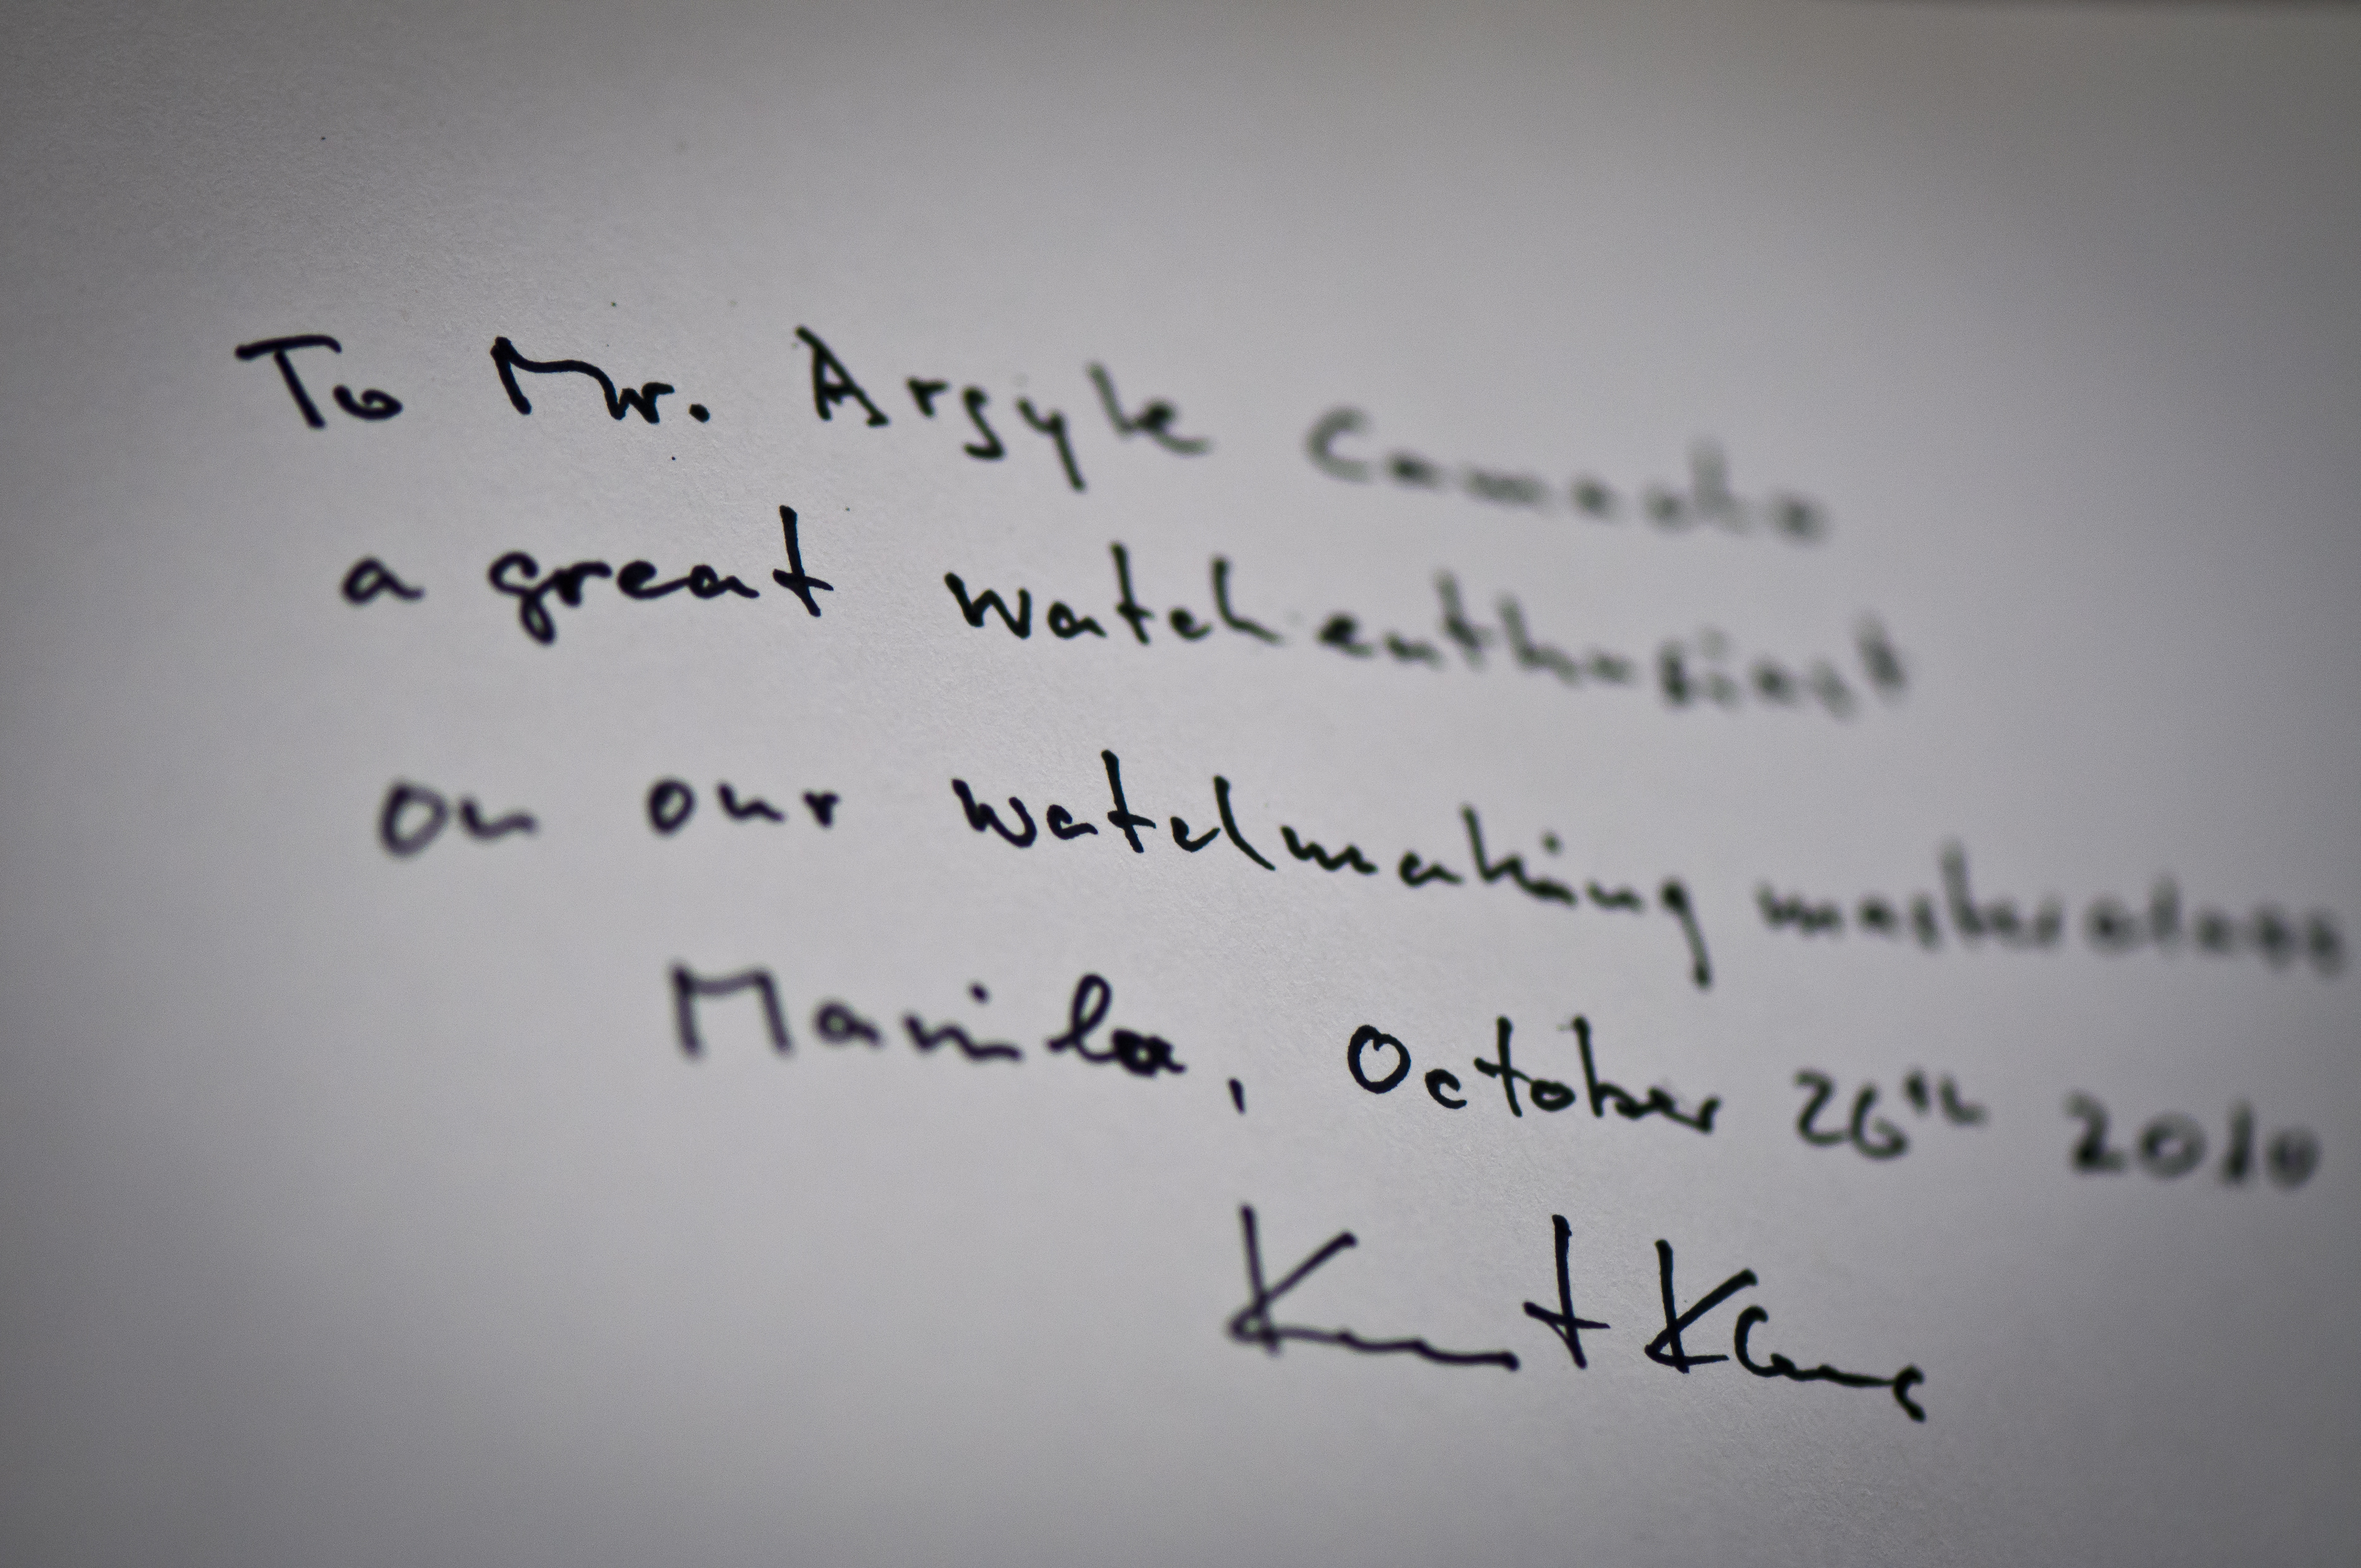 To Mr. Argyle
a great watch enthusiast
on our watchmaking masterclass
Manila, October 26th 2010
Kurt Klaus